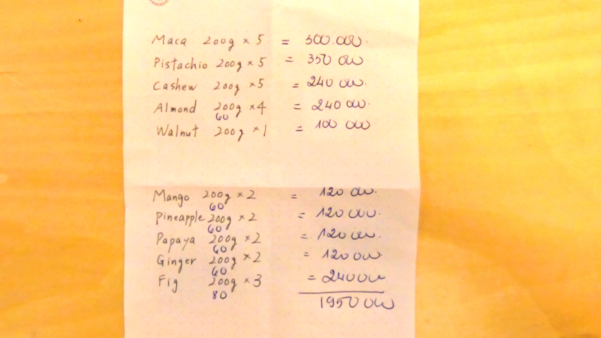 Maca 200g × 5 = 300.000.
Pistachio 200g × 5 = 350 000
Cashew 200g × 5 = 240 000.
Almond 200g × 4 = 240 000.
60
Walnut 200g × 1 = 100 000
Mango 200g × 2 = 120 000.
60
Pineapple 200g × 2 = 120 000.
60
Papaya 200g × 2 = 120 000.
60
Ginger 200g × 2 = 120 000
60
Fig 200g × 3 = 240 000
80
1950 000